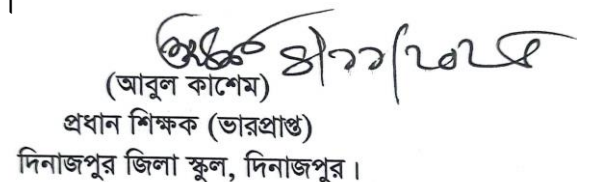 (আবুল কাশেম)
প্রধান শিক্ষক (ভারপ্রাপ্ত)
দিনাজপুর জিলা স্কুল, দিনাজপুর।